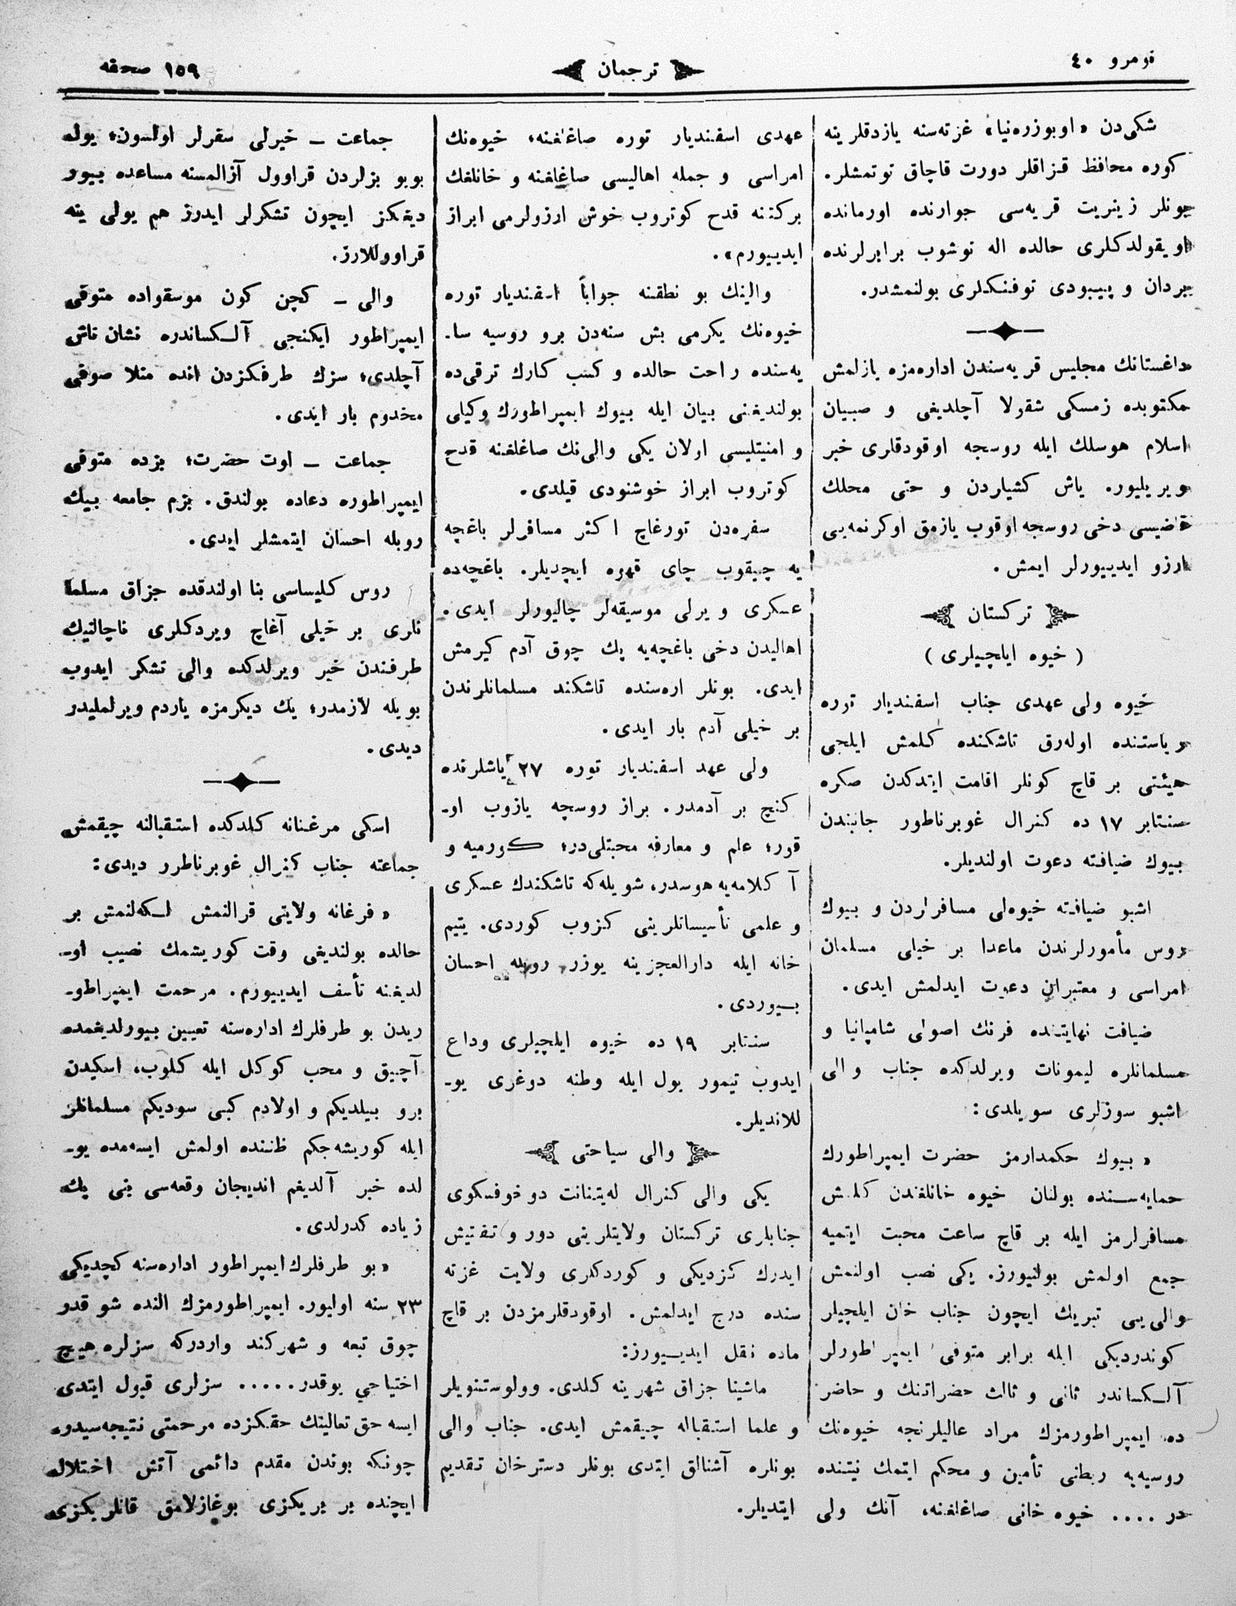 نومرو ٤٠
ترجمان
١٥٩ صحفه
شكی‌دن «اوبوزره‌نیا» غزته‌سنه یازدقلرینه
كوره محافظ قزاقلر دورت قاچاق توتمشلر.
بونلر زینریت قریه‌سی جوارنده اورمانده
اویقولدكلری حالده اله توشوب برابرلرنده
بردان و پیبودی توفنكلری بولنمشدر.
داغستانك مجلیس قریه‌سندن اداره‌مزه یازلمش
مكتوبده زمسكی شقولا آچلدیغی و صبیان
اسلام هوسلك ایله روسجه اوقودقلری خبر
ویریلیور. یاش كشیلردن و حتی محلك
قاضیسی دخی روسجه اوقوب یازمق اوكرنمه‌یی
ارزو ایدییورلر ایمش.
تركستان
( خیوه ایلچیلری )
خیوه ولی عهدی جناب اسفندیار توره
ریاستنده اوله‌رق تاشكنده كلمش ایلچی
هیئتی بر قاچ كونلر اقامت ایتدكدن صكره
سنتابر ١٧ ده كنرال غوبرناطور جانبندن
بیوك ضیافته دعوت اولندیلر.
اشبو ضیافته خیوه‌لی مسافرلردن و بیوك
روس مأمورلرندن ماعدا بر خیلی مسلمان
امراسی و معتبران دعوت ایدلمش ایدی.
ضیافت نهایتنده فرنك اصولی شامپانیا و
مسلمانلره لیمونات ویرلدكده جناب والی
اشبو سوزلری سویلدی:
« بیوك حكمدارمز حضرت ایمپراطورك
حمایه‌سنده بولنان خیوه خانلغندن كلمش
مسافرلرمز ایله بر قاچ ساعت محبت ایتمیه
جمع اولمش بولنیورز. یكی نصب اولنمش
والی‌یی تبریك ایچون جناب خان ایلچیلر
كوندردیكی ایله برابر متوفی ایمپراطورلر
آلكساندر ثانی و ثالث حضراتنك و حاضر
ده ایمپراطورمزك مراد عالیلرنجه خیوه‌نك
روسیه‌یه ربطنی تأمین و محكم ایتمك نیتنده
در .... خیوه خانی صاغلغنه، آنك ولی
عهدی اسفندیار توره صاغلغنه، خیوه‌نك
امراسی و جمله اهالیسی صاغلغنه و خانلغك
بركتنه قدح كوتروب خوش ارزولرمی ابراز
ایدییورم».
والینك بو نطقنه جواباً اسفندیار توره
خیوه‌نك یكرمی بش سنه‌دن برو روسیه سا-
یه‌سنده راحت حالده و كسب كارك ترقی‌ده
بولندیغنی بیان ایله بیوك ایمپراطورك وكیلی
و امنیتلیسی اولان یكی والی‌نك صاغلغنه قدح
كوتروب ابراز خوشنودی قیلدی.
سفره‌دن تورغاچ اكثر مسافرلر باغچه
یه چیقوب چای قهوه ایچدیلر. باغچه‌ده
عسكری و یرلی موسیقه‌لر چالیورلر ایدی.
اهالیدن دخی باغچه‌یه پك چوق آدم كیرمش
ایدی. بونلر اره‌سنده تاشكند مسلمانلرندن
بر خیلی آدم بار ایدی.
ولی عهد اسفندیار توره ٢٧ یاشلرنده
كنج بر آدمدر. براز روسچه یازوب او-
قور؛ علم و معارفه محبتلی‌در؛ كورمیه و
آكلامه‌یه هوسدر، شویله‌كه تاشكندك عسكری
و علمی تأسیساتلرینی كزوب كوردی. یتیم
خانه ایله دارالعجزینه یوزر روبله احسان
بیوردی.
سنتابر ١٩ ده خیوه ایلچیلری وداع
ایدوب تیمور یول ایله وطنه دوغری یو-
للاندیلر.
والی سیاحتی
یكی والی كنرال له‌یتینانت دوخوفسكوی
جنابلری تركستان ولایتلرینی دور و تفتیش
ایدرك كزدیكی و كوردكلری ولایت غزته
سنده درج ایدلمش. اوقودقلرمزدن بر قاچ
ماده نقل ایدییورز:
ماشینا جزاق شهرینه كلدی. وولوستنویلر
و علما استقباله چیقمش ایدی. جناب والی
بونلره آشنالق ایتدی بونلر دسترخان تقدیم
ایتدیلر.
جماعت – خیرلی سفرلر اولسون؛ یوله
بویو بزلردن قراوول آزالمسنه مساعده بیور
دیغكز ایچون تشكرلر ایدرز هم یولی ینه
قراووللارز.
والی – كچن كون موسقواده متوفی
ایمپراطور ایكنجی آلكساندره نشان تاش
آچلدی؛ سزك طرفكزدن انده متلا صوفی
مخدوم بار ایدی.
جماعت – اوت حضرت؛ بزده متوفی
ایمپراطوره دعاده بولندق. بزم جامعه بیك
روبله احسان ایتمشلر ایدی.
روس كلیساسی بنا اولندقده جزاق مسلما
نلری بر خیلی آغاچ ویردكلری ناچالنیك
طرفندن خبر ویرلدكده والی تشكر ایدوب
بویله لازمدر؛ یك دیكرمزه یاردم ویرلملیدر
دیدی.
اسكی مرغنانه كلدكده استقبالنه چیقمش
جماعته جناب كنرال غوبرناطور دیدی:
« فرغانه ولایتی قرالنمش لكه‌لنمش بر
حالده بولندیغی وقت كوریشمك نصیب او-
لدیغنه تأسف ایدییورم. مرحمت ایمپراطو-
ریدن بو طرفلرك اداره‌سنه تعیین بیورلدیغمده
آچیق و محب كوكل ایله كلوب، اسكیدن
برو بیلدیكم و اولادم كبی سودیكم مسلمانلر
ایله كوریشه‌جكم ظننده اولمش ایسه‌مده یو-
لده خبر آلدیغم اندیجان وقعه‌سی بنی پك
زیاده كدرلدی.
«بو طرفلرك ایمپراطور اداره‌سنه كچدیكی
٢٣ سنه اولیور. ایمپراطورمزك النده شو قدر
چوق تبعه و شهركند واردركه سزلره هیچ
اختیاجی یوقدر..... سزلری قبول ایتدی
ایسه حق تعالینك حقكزده مرحمتی نتیجه‌سیدر
چونكه بوندن مقدم دائمی آتش اختلاله
ایچنده بر بریكزی بوغازلامق قانلریكزی